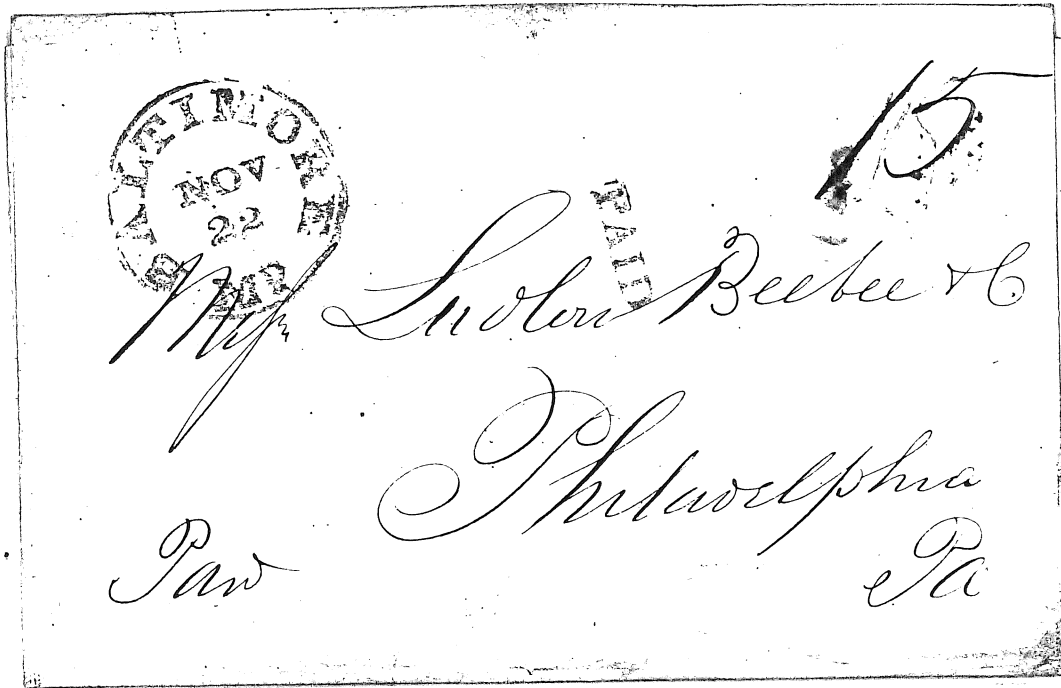 BALTIMORE Md.
NOV
22
15
PAID
Mess Ludlow Beebee & C.
Philadelphia
Paid
Pa